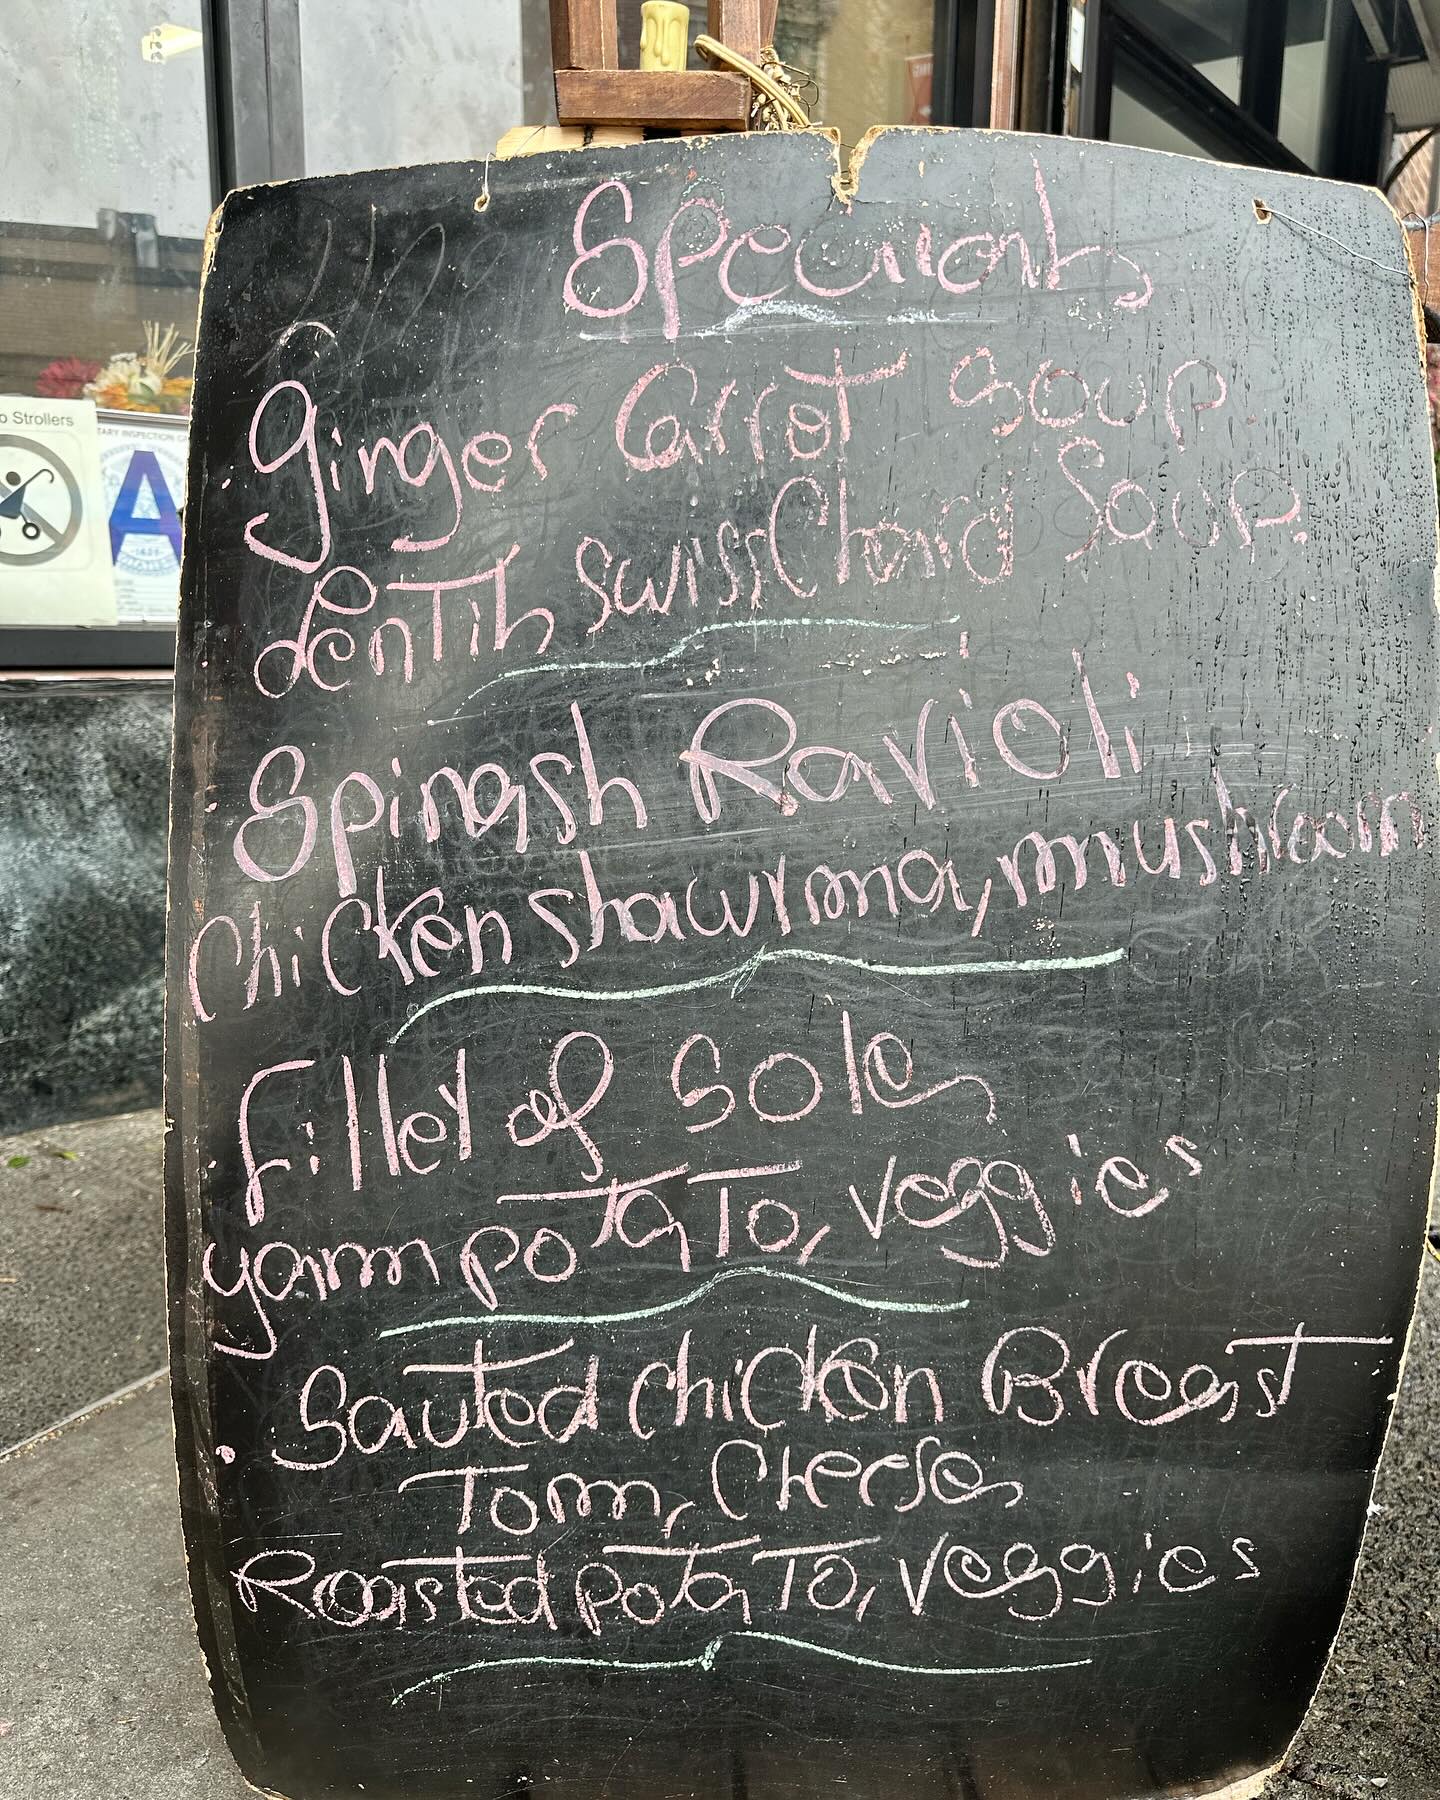 Specials
Ginger Carrot Soup.
Lentils Swiss Chard Soup.
Spinash Ravioli
Chicken shawrma, mushroom
Fillet of Sole,
yam potato, veggies
Sauted Chicken Breast
Tom, Cheese,
Roasted potato, veggies
o Strollers
TARY INSPECTION G
A